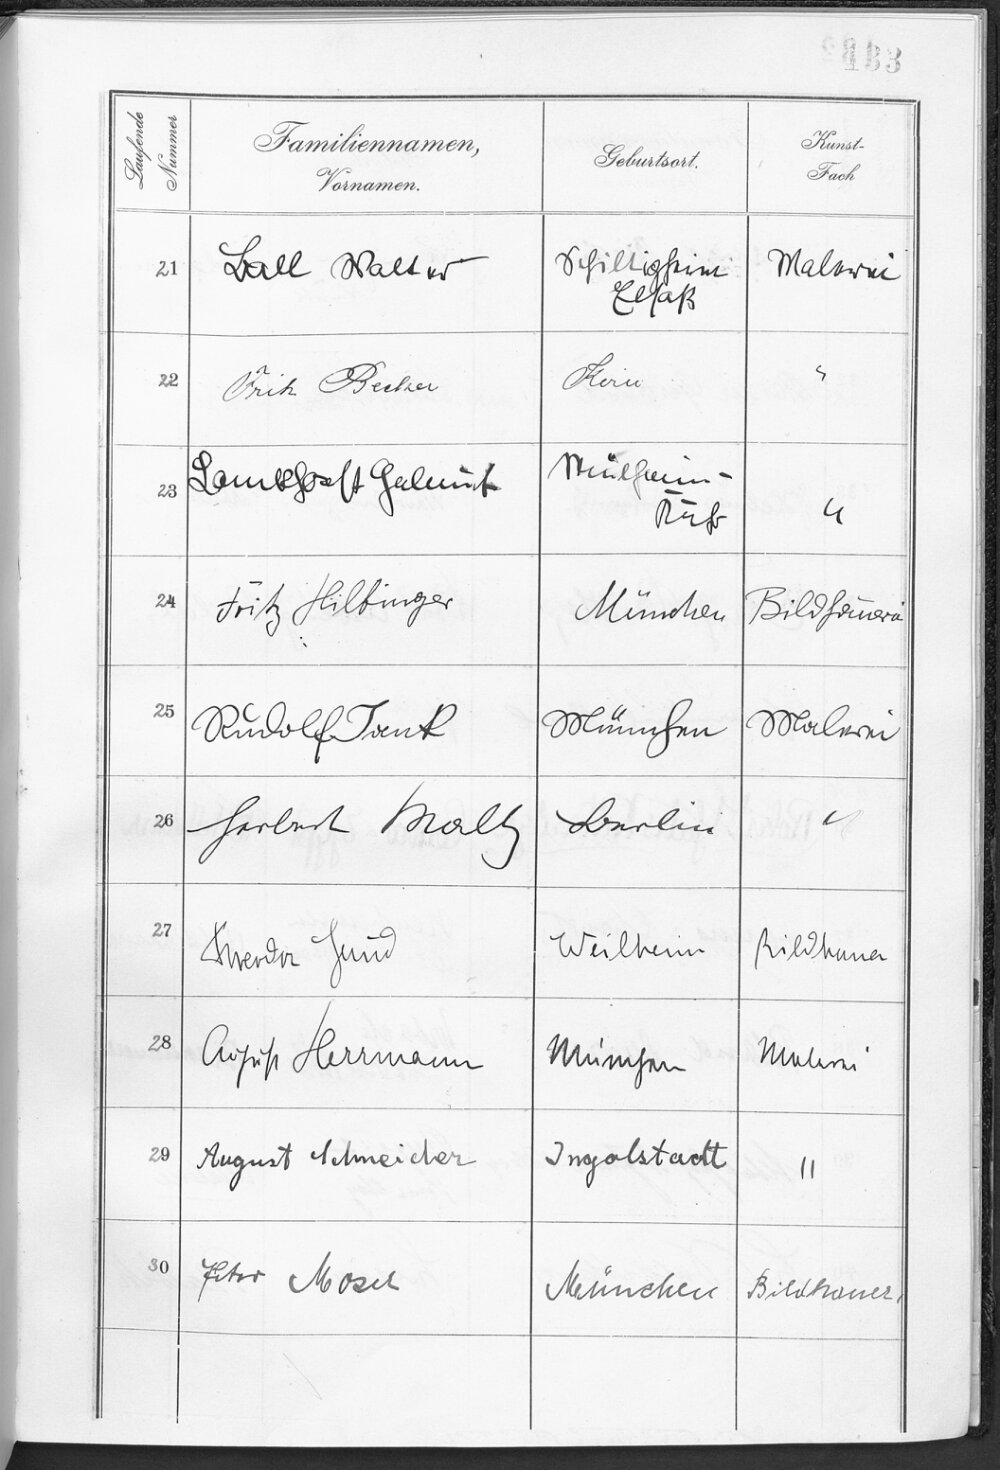 Laufende Nummer
Familiennamen,
Vornamen.
Geburtsort.
Kunst-
Fach
21 Ball Walter Schiltigheim Malerei
Elsaß
22 Fritz Becker "
23 Mülheim-
Ruhr "
24 Fritz Hilbinger München Bildhauerei
25 Rudolf Jank München Malerei
26 Herbert Moltz Berlin "
27 Theodor Weilheim Bildhauer
28 August Herrmann München Malerei
29 August Schneider Ingolstadt "
30 Peter Moser München Bildhauer.